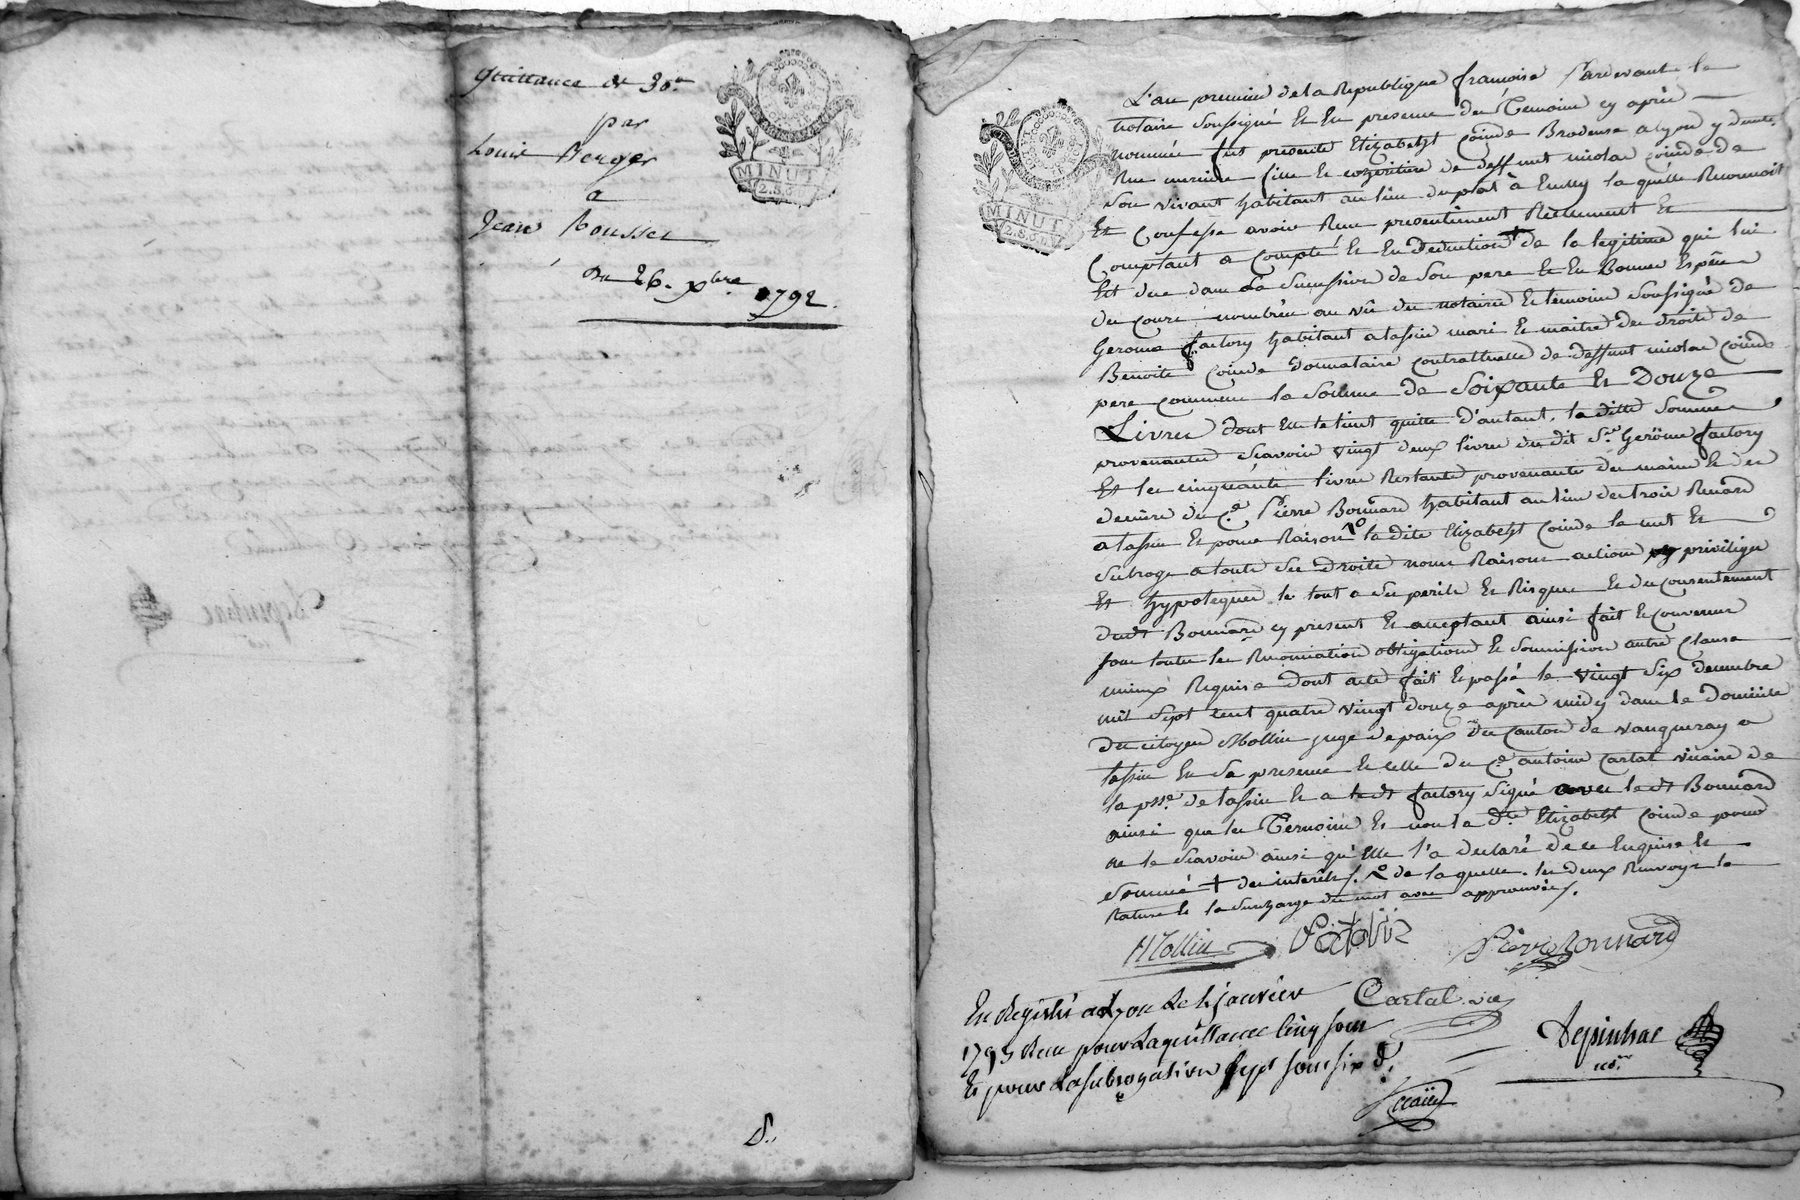 quittance de 30.tt
par
Louis Berger
a
Jean Rousset
Du 26. Xbre 1792.
MINUT.
2.S.6.D
8.
MINUT.
2.S.6.D
L'an premier de la Republique françoise Pardevant le
notaire soussigné et En presence des Temoins cy après
nommés fut presente Elizabeth Coinde Brodeuse a lyon y demte.
Rue merciere fille et coheritiere de deffunt nicolas Coinde de
son vivant habitant au lieu du plat à Ecully laquelle Reconnoit
Et Confesse avoir Reçu presentement Reellement Et
Comptant a Compte Et En deduction + de la legitime qui lui
Est due dans La Succession de Son pere Et En Bonnes Especes
du cours nombrées au vû du notaire Et temoins Soussignés de
Gerome factory habitant a tassin mari Et maitre des droits de
Benoite Coinde donnataire Contractuelle de deffunt nicolas Coinde
pere Commun la Somme de Soixante Et Douze
Livres dont Elle le tient quitte d'autant, la ditte Somme
provenante Sçavoir vingt deux livres du dit Sr. Gerôme factory
Et les cinquante livres Restante provenante des mains Et des
deniers du Cn. Pierre Bonnard habitant au lieu des trois Renard
a tassin Et pour Raison la dite Elizabeth Coinde le met Et
subroge a touts Ses droits noms Raisons actions privileges
Et hypoteques le tout a Ses perils Et Risques Et du Consentement
dudt Bonnard cy present Et acceptant ainsi fait Et Convenu
sous toutes les Renonciations obligations Et Soumissions autres Clauses
mieux Requise dont acte fait Et passé le vingt Six decembre
mil Sept cent quatre vingt douze après midy dans le Domicile
du citoyen Mollin juge de paix du Canton de vaugneray a
tassin En Sa presence Et celle du Cn. antoine Cartal vicaire de
la psse. de tassin Et a ledt factory Signé avec ledt Bonnard
ainsi que les Temoins Et non la de. Elizabeth Coinde pour
ne le Sçavoir ainsi qu'Elle l'a declaré de ce Enquise Et
Sommée + des interêts /. de laquelle. les deux Renvoys la
Rature Et la Surcharge du mot avec approuvées /.
Mollin
Pierre Bonnard
Cartal vic
En Registré a Lyon Le 4 janvier
1793 Reçu pour La quittance Cinq sous
Et pour La subrogation Sept sous six d.
Depinhac
nore.